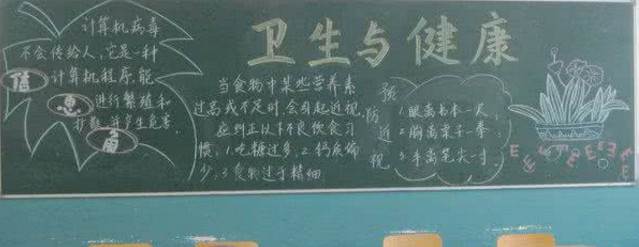 卫生与健康
计算机病毒
不会传给人,它是一种
计算机程序,能
进行繁殖和
扩散,并产生危害.
信
息
角
当食物中某些营养素
过高或不足时,会引起近视,
应纠正以下不良饮食习
惯:1.吃糖过多,2.钙质偏
少,3.食物过于精细
预
防
近
视
1.眼离书本一尺;
2.胸离桌子一拳;
3.手离笔尖一寸.
E E E E E E E